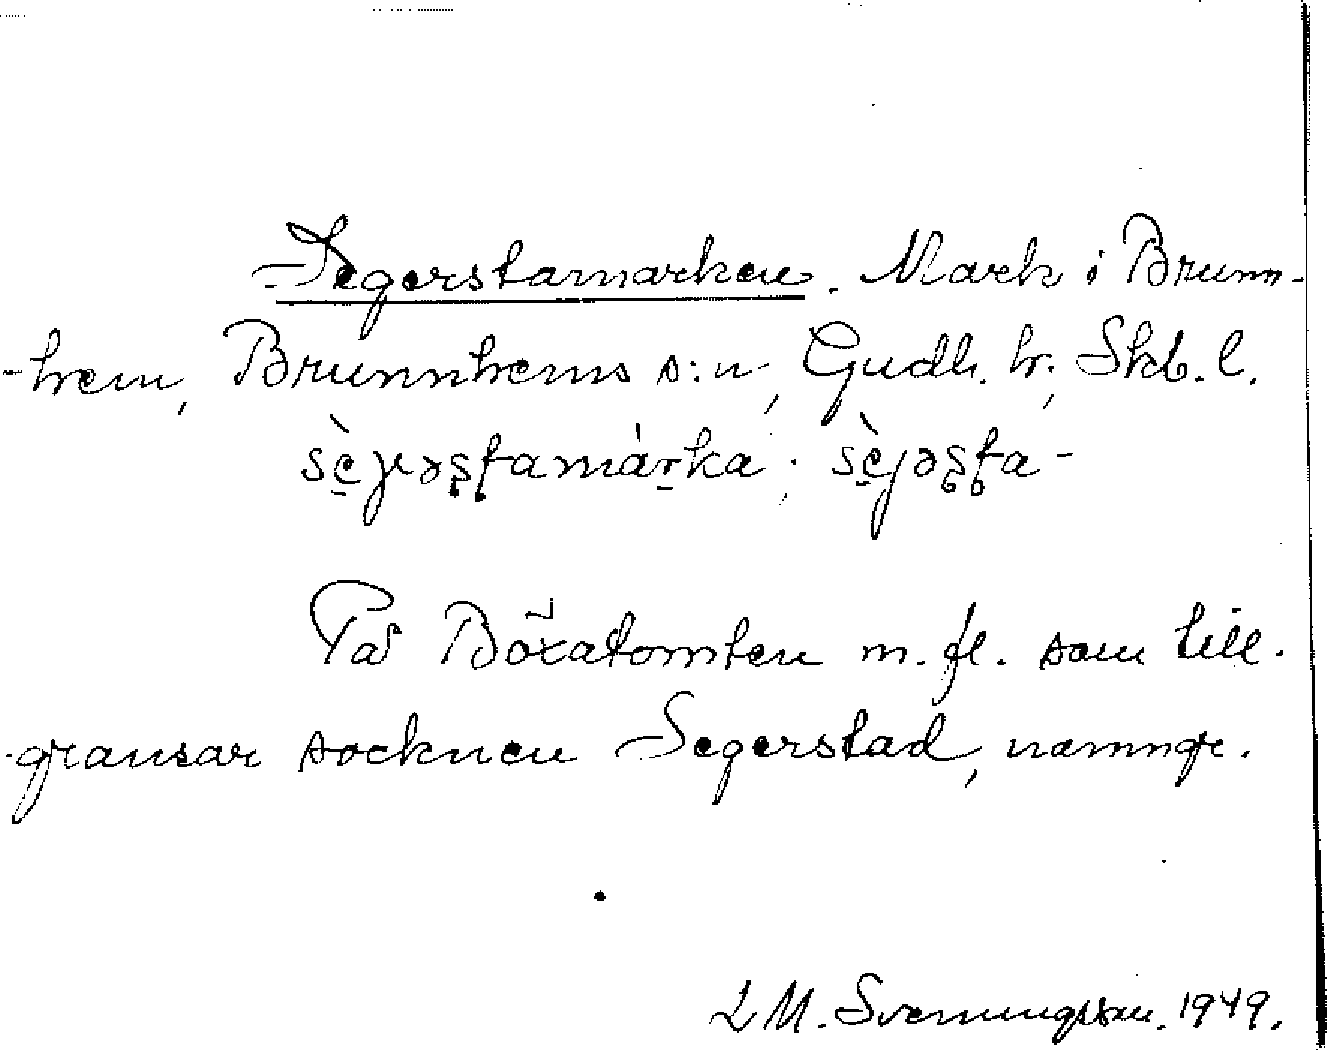 Segerstamarken. Mark i Brunn-
-hem, Brunnhems s:n, Gudh. hr, Skb. l.
På Böxatomten m. fl. som till-
-gränsar socknen Segerstad, nämnge.
L M. Svenungsson. 1949.